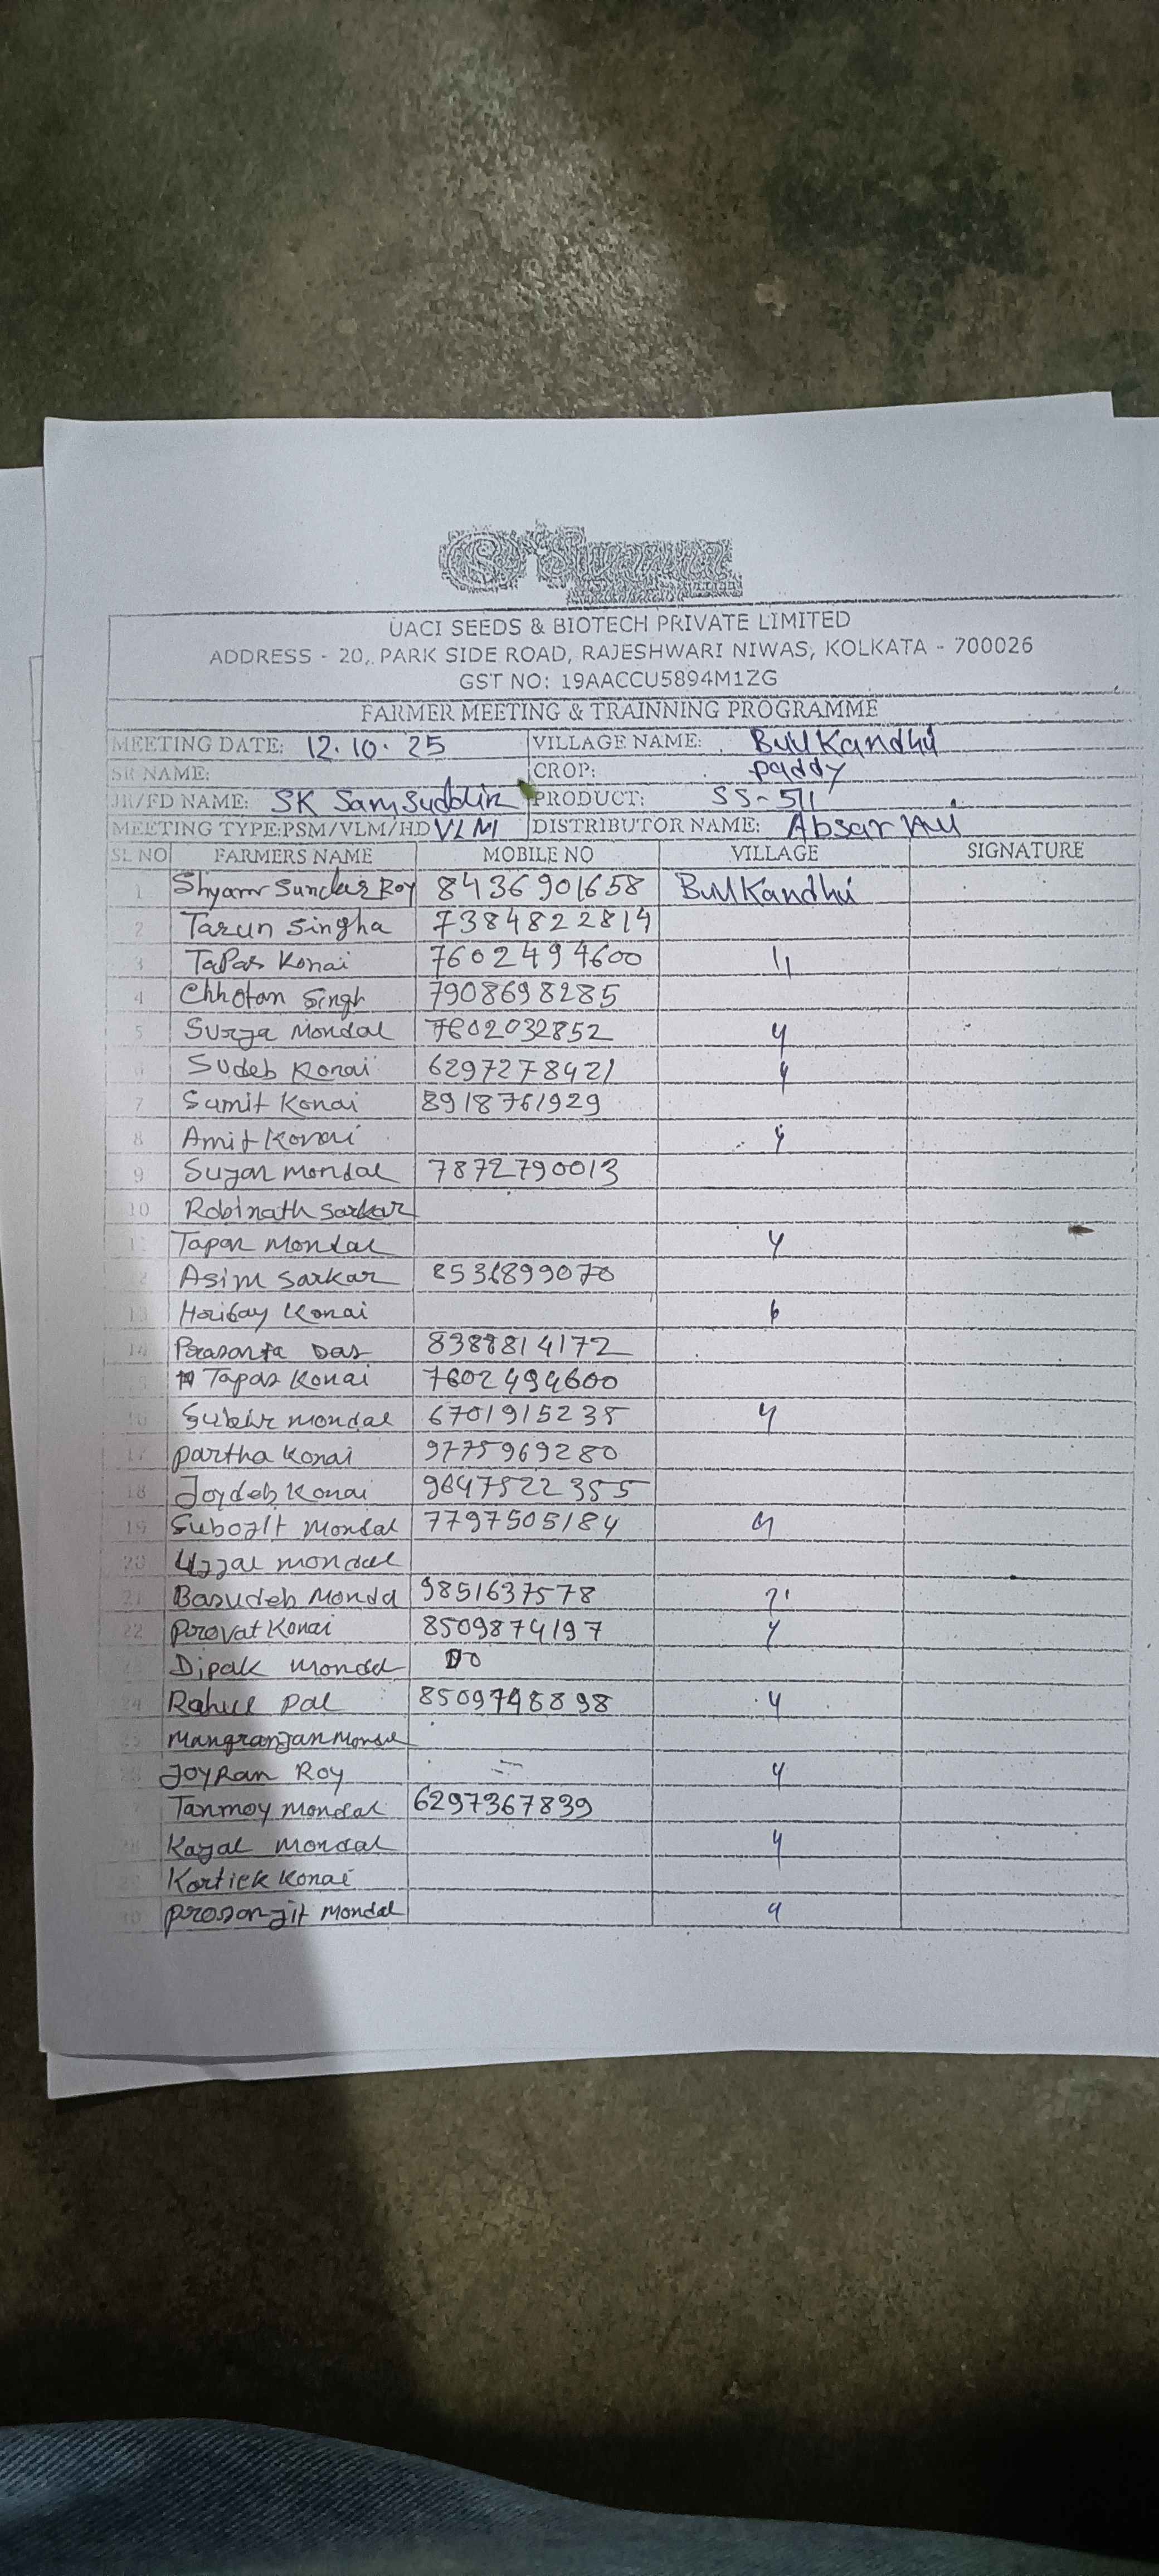 UACI SEEDS & BIOTECH PRIVATE LIMITED
ADDRESS - 20, PARK SIDE ROAD, RAJESHWARI NIWAS, KOLKATA - 700026
GST NO: 19AACCU5894M1ZG
FARMER MEETING & TRAINNING PROGRAMME
MEETING DATE: 12.10.25 VILLAGE NAME: BullKandhi
SR NAME: CROP: paddy
JR/FD NAME: SK Samsuddin PRODUCT: SS-511
MEETING TYPE:PSM/VLM/HD VLM DISTRIBUTOR NAME: Absar
SL NO FARMERS NAME MOBILE NO VILLAGE SIGNATURE
1 Shyam Sundar Roy 8436901658 BullKandhi
2 Tarun Singha 7384822814
3 Tapas Konai 7602494600 "
4 Chhotan Singh 7908698285
5 Surja Mondal 7602032852 "
6 Sudeb Konai 6297278421 "
7 Sumit Konai 8918761929
8 Amit Konai "
9 Sujan Mondal 7872790013
10 Robinath Sarkar
11 Tapan Mondal "
12 Asim Sarkar 8536899070
13 Konai "
14 Prasanta Das 8388814172
Tapas Konai 7602494600
16 Subir mondal 6701915235 "
17 partha Konai 9775969280
18 Joydeb Konai 9647522355
19 Subojit Mondal 7797505184 "
20 Ujjal mondal
21 Basudeb Mondal 9851637578 "
22 Provat Konai 8509874197 "
Dipak Mondal Do
24 Rahul pal 8509748898 "
Mondal
26 Joyran Roy = "
Tanmoy Mondal 6297367839
28 Kajal Mondal "
Kartick Konai
30 prosonjit Mondal "